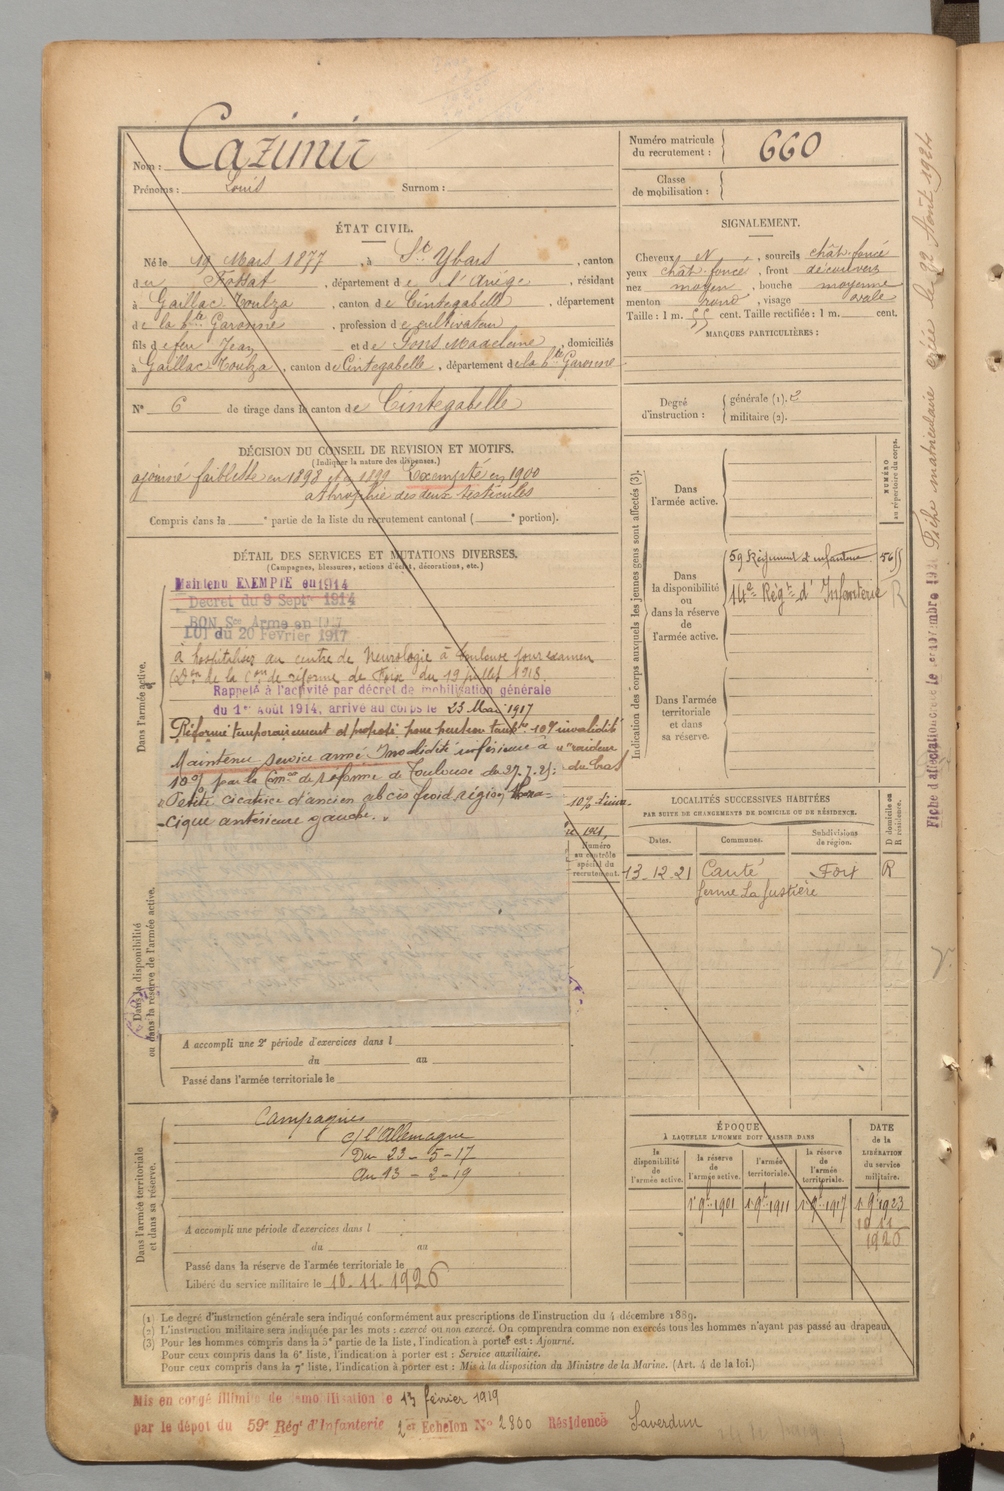 Nom : Cazimir
Prénoms : Louis Surnom :
Numéro matricule du recrutement : 660
Classe de mobilisation :
ÉTAT CIVIL.
Né le 19 Mars 1877, à St Ybars, canton
du Fossat, département de l'Ariège, résidant
à Gaillac Toulza, canton de Cintegabelle, département
de la Hte Garonne, profession de cultivateur
fils de feu Jean et de Pons Madeleine, domiciliés
à Gaillac Toulza, canton de Cintegabelle, département de la Hte Garonne
N° 6 de tirage dans le canton de Cintegabelle
SIGNALEMENT.
Cheveux N, sourcils chât. foncé
yeux chât. foncé, front découvert
nez moyen, bouche moyenne
menton rond, visage ovale
Taille : 1 m. 55 cent. Taille rectifiée : 1 m. cent.
MARQUES PARTICULIÈRES :
Degré d'instruction : générale (1). 2
militaire (2).
DÉCISION DU CONSEIL DE REVISION ET MOTIFS.
(Indiquer la nature des dispenses.)
ajourné faiblesse en 1898 et en 1899 Exempté en 1900
atrophie des deux testicules
Compris dans la e partie de la liste du recrutement cantonal ( e portion).
DÉTAIL DES SERVICES ET MUTATIONS DIVERSES.
(Campagnes, blessures, actions d'éclat, décorations, etc.)
Dans l'armée active.
Maintenu EXEMPTÉ en 1914
Décret du 9 Septre 1914
BON Sce Armé en 1917
LOI du 20 Février 1917
à hospitaliser au centre de Neurologie à Toulouse pour examen
de la Con de réforme de Foix du 19 juillet 1918.
Rappelé à l'activité par décret de mobilisation générale
du 1er Août 1914, arrivé au corps le 23 Mai 1917
Réformé temporairement et proposé pour pension 10% invalidité
Maintenu service armé. Invalidité inférieure à
10% par la Comon de réforme de Toulouse du 27.7.21:
"Petite cicatrice d'ancien abcès froid région thora-
-cique antérieure gauche."
raideur
du bras
1921,
Numéro au contrôle spécial du recrutement.
Dans la disponibilité ou dans la réserve de l'armée active.
A accompli une 2e période d'exercices dans l
du au
Passé dans l'armée territoriale le
Dans l'armée territoriale et dans sa réserve.
Campagnes
c/ l'Allemagne
Du 23 - 5 - 17
Au 13 - 2 - 19
A accompli une période d'exercices dans l
du au
Passé dans la réserve de l'armée territoriale le
Libéré du service militaire le 10.11.1926
Indication des corps auxquels les jeunes gens sont affectés (3).
NUMÉRO au répertoire du corps.
Dans l'armée active.
Dans la disponibilité ou dans la réserve de l'armée active.
59 Régiment d'infanterie
14e Régt d'Infanterie R
Dans l'armée territoriale et dans sa réserve.
LOCALITÉS SUCCESSIVES HABITÉES
PAR SUITE DE CHANGEMENTS DE DOMICILE OU DE RÉSIDENCE.
D domicile ou R résidence.
Dates. Communes. Subdivisions de région.
13_12_21 Canté Foix R
ferme La Justière
ÉPOQUE
À LAQUELLE L'HOMME DOIT PASSER DANS
DATE de la LIBÉRATION du service militaire.
la disponibilité de l'armée active.
la réserve de l'armée active.
l'armée territoriale.
la réserve de l'armée territoriale.
1er 9bre 1901 1er 9bre 1911 1er 9bre 1917 1er 9bre 1923
10.11
1926
(1) Le degré d'instruction générale sera indiqué conformément aux prescriptions de l'instruction du 4 décembre 1889.
(2) L'instruction militaire sera indiquée par les mots : exercé ou non exercé. On comprendra comme non exercés tous les hommes n'ayant pas passé au drapeau.
(3) Pour les hommes compris dans la 5e partie de la liste, l'indication à porter est : Ajourné.
Pour ceux compris dans la 6e liste, l'indication à porter est : Service auxiliaire.
Pour ceux compris dans la 7e liste, l'indication à porter est : Mis à la disposition du Ministre de la Marine. (Art. 4 de la loi.)
Mis en congé illimité de démobilisation le 13 février 1919
par le dépôt du 59e Régt d'Infanterie 2er Echelon N° 2800 Résidence Saverdun
Fiche d'affectation créée le 1er novembre
Fiche matriculaire créée le 22 Août 1924